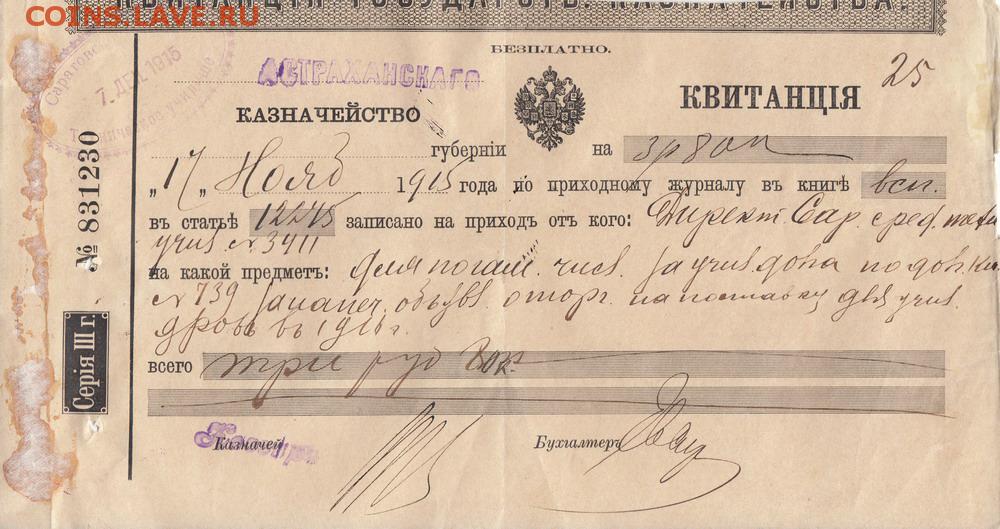 COINS.LAVE.RU
КВИТАНЦІЯ ГОСУДАРСТВ. КАЗНАЧЕЙСТВА.
БЕЗПЛАТНО.
25
АСТРАХАНСКАГО
7. ДЕК 1915
КАЗНАЧЕЙСТВО
КВИТАНЦІЯ
губерніи на 3р 80к
„17„ Нояб 1915 года по приходному журналу въ книгѣ всп.
въ статьѣ 12245 записано на приходъ отъ кого: Директ Сар. сред. техн
учил. № 3411
на какой предметъ: Для погаш. числ. за учил. дола по
№ 739 за напеч. объявл. о торг. на поставку для учил.
дровъ въ 1916 г.
всего три руб 80к
Казначей
Бухгалтеръ
№ 831230
Серія III г.